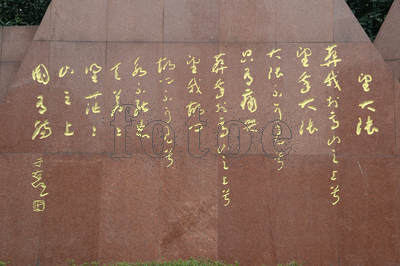 望大陸
葬我於高山之上兮
望我大陸
大陸不可見兮
只有痛哭
葬我於高山之上兮
望我故鄉
故鄉不可見兮
永不能忘
天蒼蒼
野茫茫
山之上
國有殤
于右任
fotoe